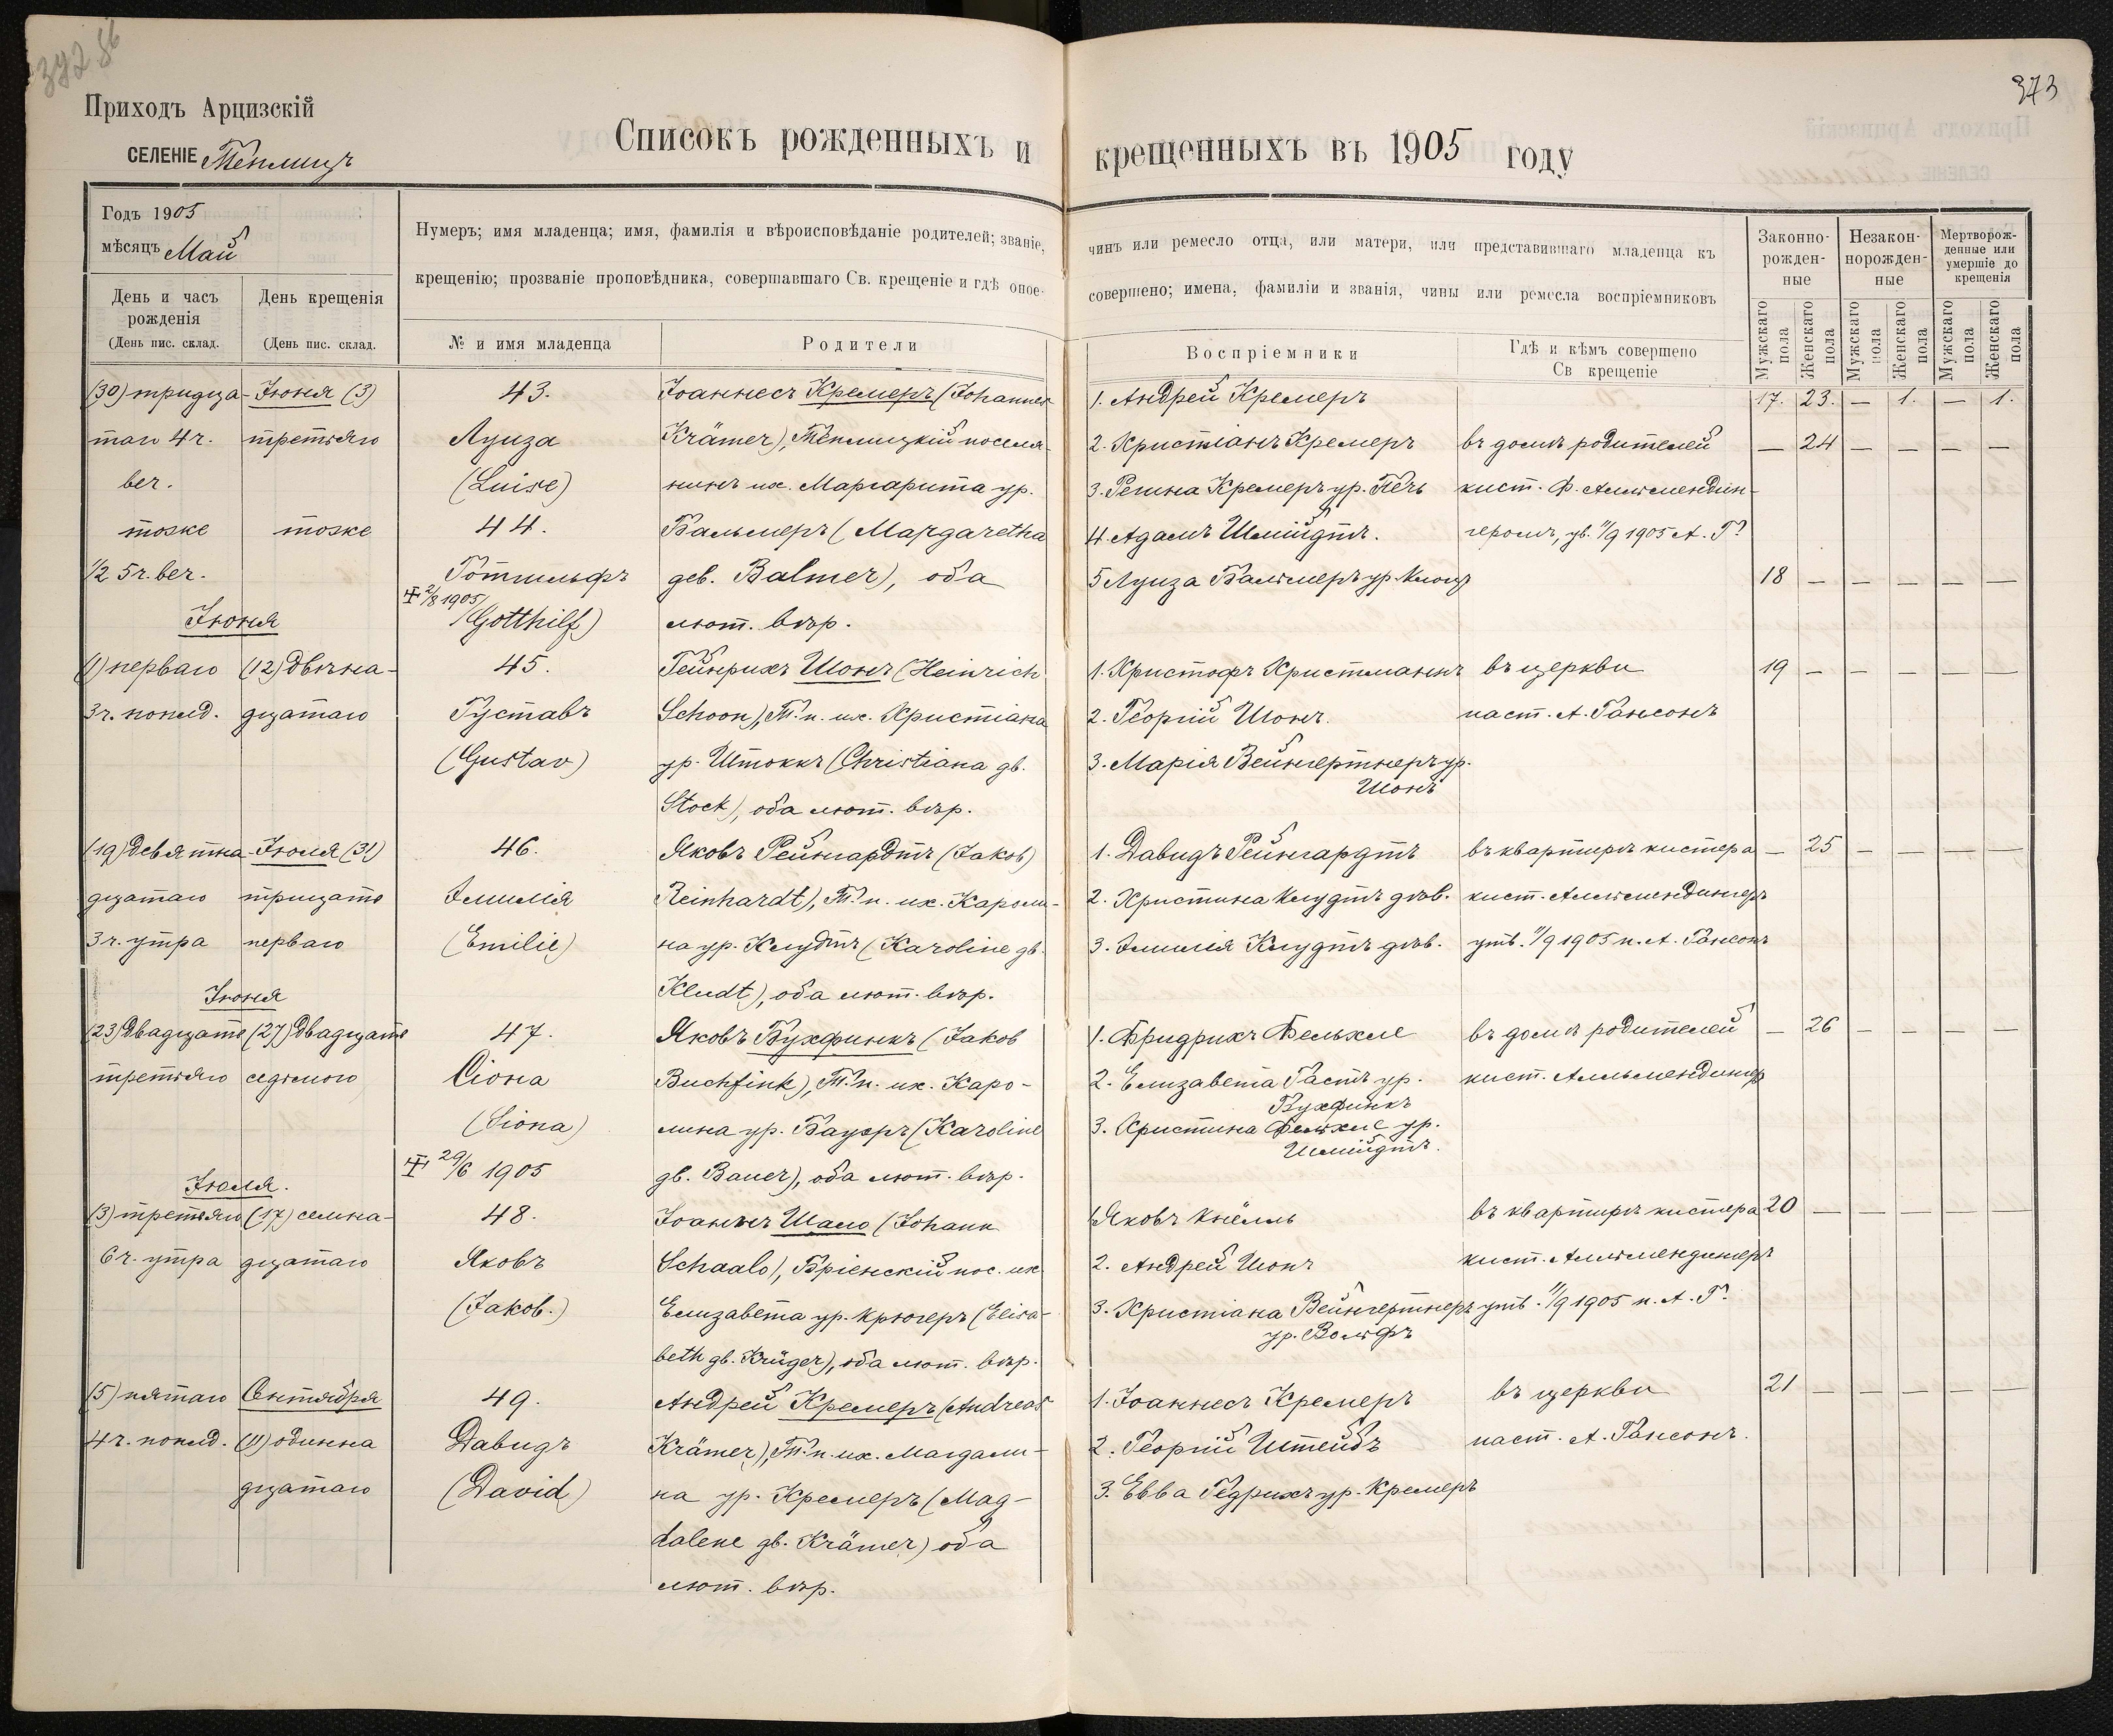 372 об
Приходъ Арцизскій
СЕЛЕНІЕ Теплицъ
Списокъ рожденныхъ и
Годъ 1905
мѣсяцъ Май
Нумеръ; имя младенца; имя, фамилія и вѣроисповѣданіе родителей; званіе,
крещенію; прозваніе проповѣдника, совершавшаго Св. крещеніе и гдѣ оное
День и часъ рожденія
(День пис. склад.
День крещенія
(День пис. склад.
№ и имя младенца
Родители
(30) тридца- Іюня (3) 43. Іоаннесъ Кремеръ (Johannes
таго 4 ч. третьяго Луиза Krämer), Теплицкій поселя-
веч. (Luise) нинъ и ж. Маргарита ур.
тоже тоже 44. Бальмеръ (Margaretha
1/2 5 ч. веч. Готтильфъ дев. Balmer), оба
2/8 1905
Іюня (Gotthilf) лют. вѣр.
(1) перваго (12) двѣна- 45. Гейнрихъ Шонъ (Heinrich
3 ч. попол. дцатаго Густавъ Schoon), Т. п. и ж. Христіана
(Gustav) ур. Штоккъ (Christiana дв.
Stock), оба лют. вѣр.
(19) девятна- Іюля (31) 46. Яковъ Рейнгардтъ (Jakob)
дцатаго тридцать Эмилія Reinhardt), Т. п. и ж. Кароли-
3 ч. утра перваго (Emilie) на ур. Клудтъ (Karoline дв.
Іюня Kludt), оба лют. вѣр.
(23) Двадцать (27) Двадцать 47. Яковъ Бухфинкъ (Jakob
третьяго седьмого Сіона Buchfink), Т. п. и ж. Каро-
(Siona) лина ур. Бауеръ (Karoline
29/6 1905 дв. Bauer), оба лют. вѣр.
Іюля.
(3) третьяго (17) семна- 48. Іоаннъ Шало (Johann
6 ч. утра дцатаго Яковъ Schaalo), Бріенскій пос. и ж.
(Jakob.) Елизавета ур. Крюгеръ (Elisa-
beth дв. Krüger), оба лют. вѣр.
(5) пятаго Сентября 49. Андрей Кремеръ (Andreas
4 ч. попол. (11) одинна Давидъ Krämer), Т. п. и ж. Магдали-
дцатаго (David) на ур. Кремеръ (Mag-
dalene дв. Krämer) оба
лют. вѣр.
373
крещенныхъ въ 1905 году
чинъ или ремесло отца, или матери, или представившаго младенца къ
совершено; имена, фамиліи и званія, чины или ремесла воспріемниковъ
Воспріемники
Гдѣ и кѣмъ совершено
Св крещеніе
Законно-
рожден-
ные
Незакон-
норожден-
ные
Мертворож-
денные или
умершіе до
крещенія
Мужскаго пола
Женскаго пола
Мужскаго пола
Женскаго пола
Мужскаго пола
Женскаго пола
1. Андрей Кремеръ 17. 23. — 1. — 1.
2. Христіанъ Кремеръ въ домѣ родителей — 24 — — — —
3. Регина Кремеръ ур. кист. Ф. Алльмендин-
4. Адамъ Шмидтъ. геромъ, ув. 11/9 1905 А. Г.
5 Луиза Бальмеръ ур. 18 — — — — —
1. Христофъ Христманнъ въ церкви 19 — — — — —
2. Георгій Шонъ. паст. А. Гансонъ
3. Марія Вейнгертнеръ ур.
Шонъ
1. Давидъ Рейнгардтъ въ квартирѣ кистера — 25 — — — —
2. Христина Клудтъ дѣв. кист. Алльмендингеръ
3. Эмилія Клудтъ дѣв. утв. 11/9 1905 п. А. Гансонъ
1. Фридрихъ Фелькле въ домѣ родителей — 26 — — — —
2. Елизавета Гастъ ур. кист. Алльмендингер
Бухфинкъ
3. Христина Фелькле ур.
Шмидтъ.
1 Яковъ Кнёлль въ квартирѣ кистера 20 — — — — —
2. Андрей Шонъ кист. Алльмендингеръ
3. Христіана Вейнгертнеръ утв. 11/9 1905 п. А. Г.
ур. Вольфъ
1. Іоаннесъ Кремеръ въ церкви 21 — — — — —
2. Георгій Штейбъ паст. А. Гансонъ.
3. Евва Гедрихъ ур. Кремеръ